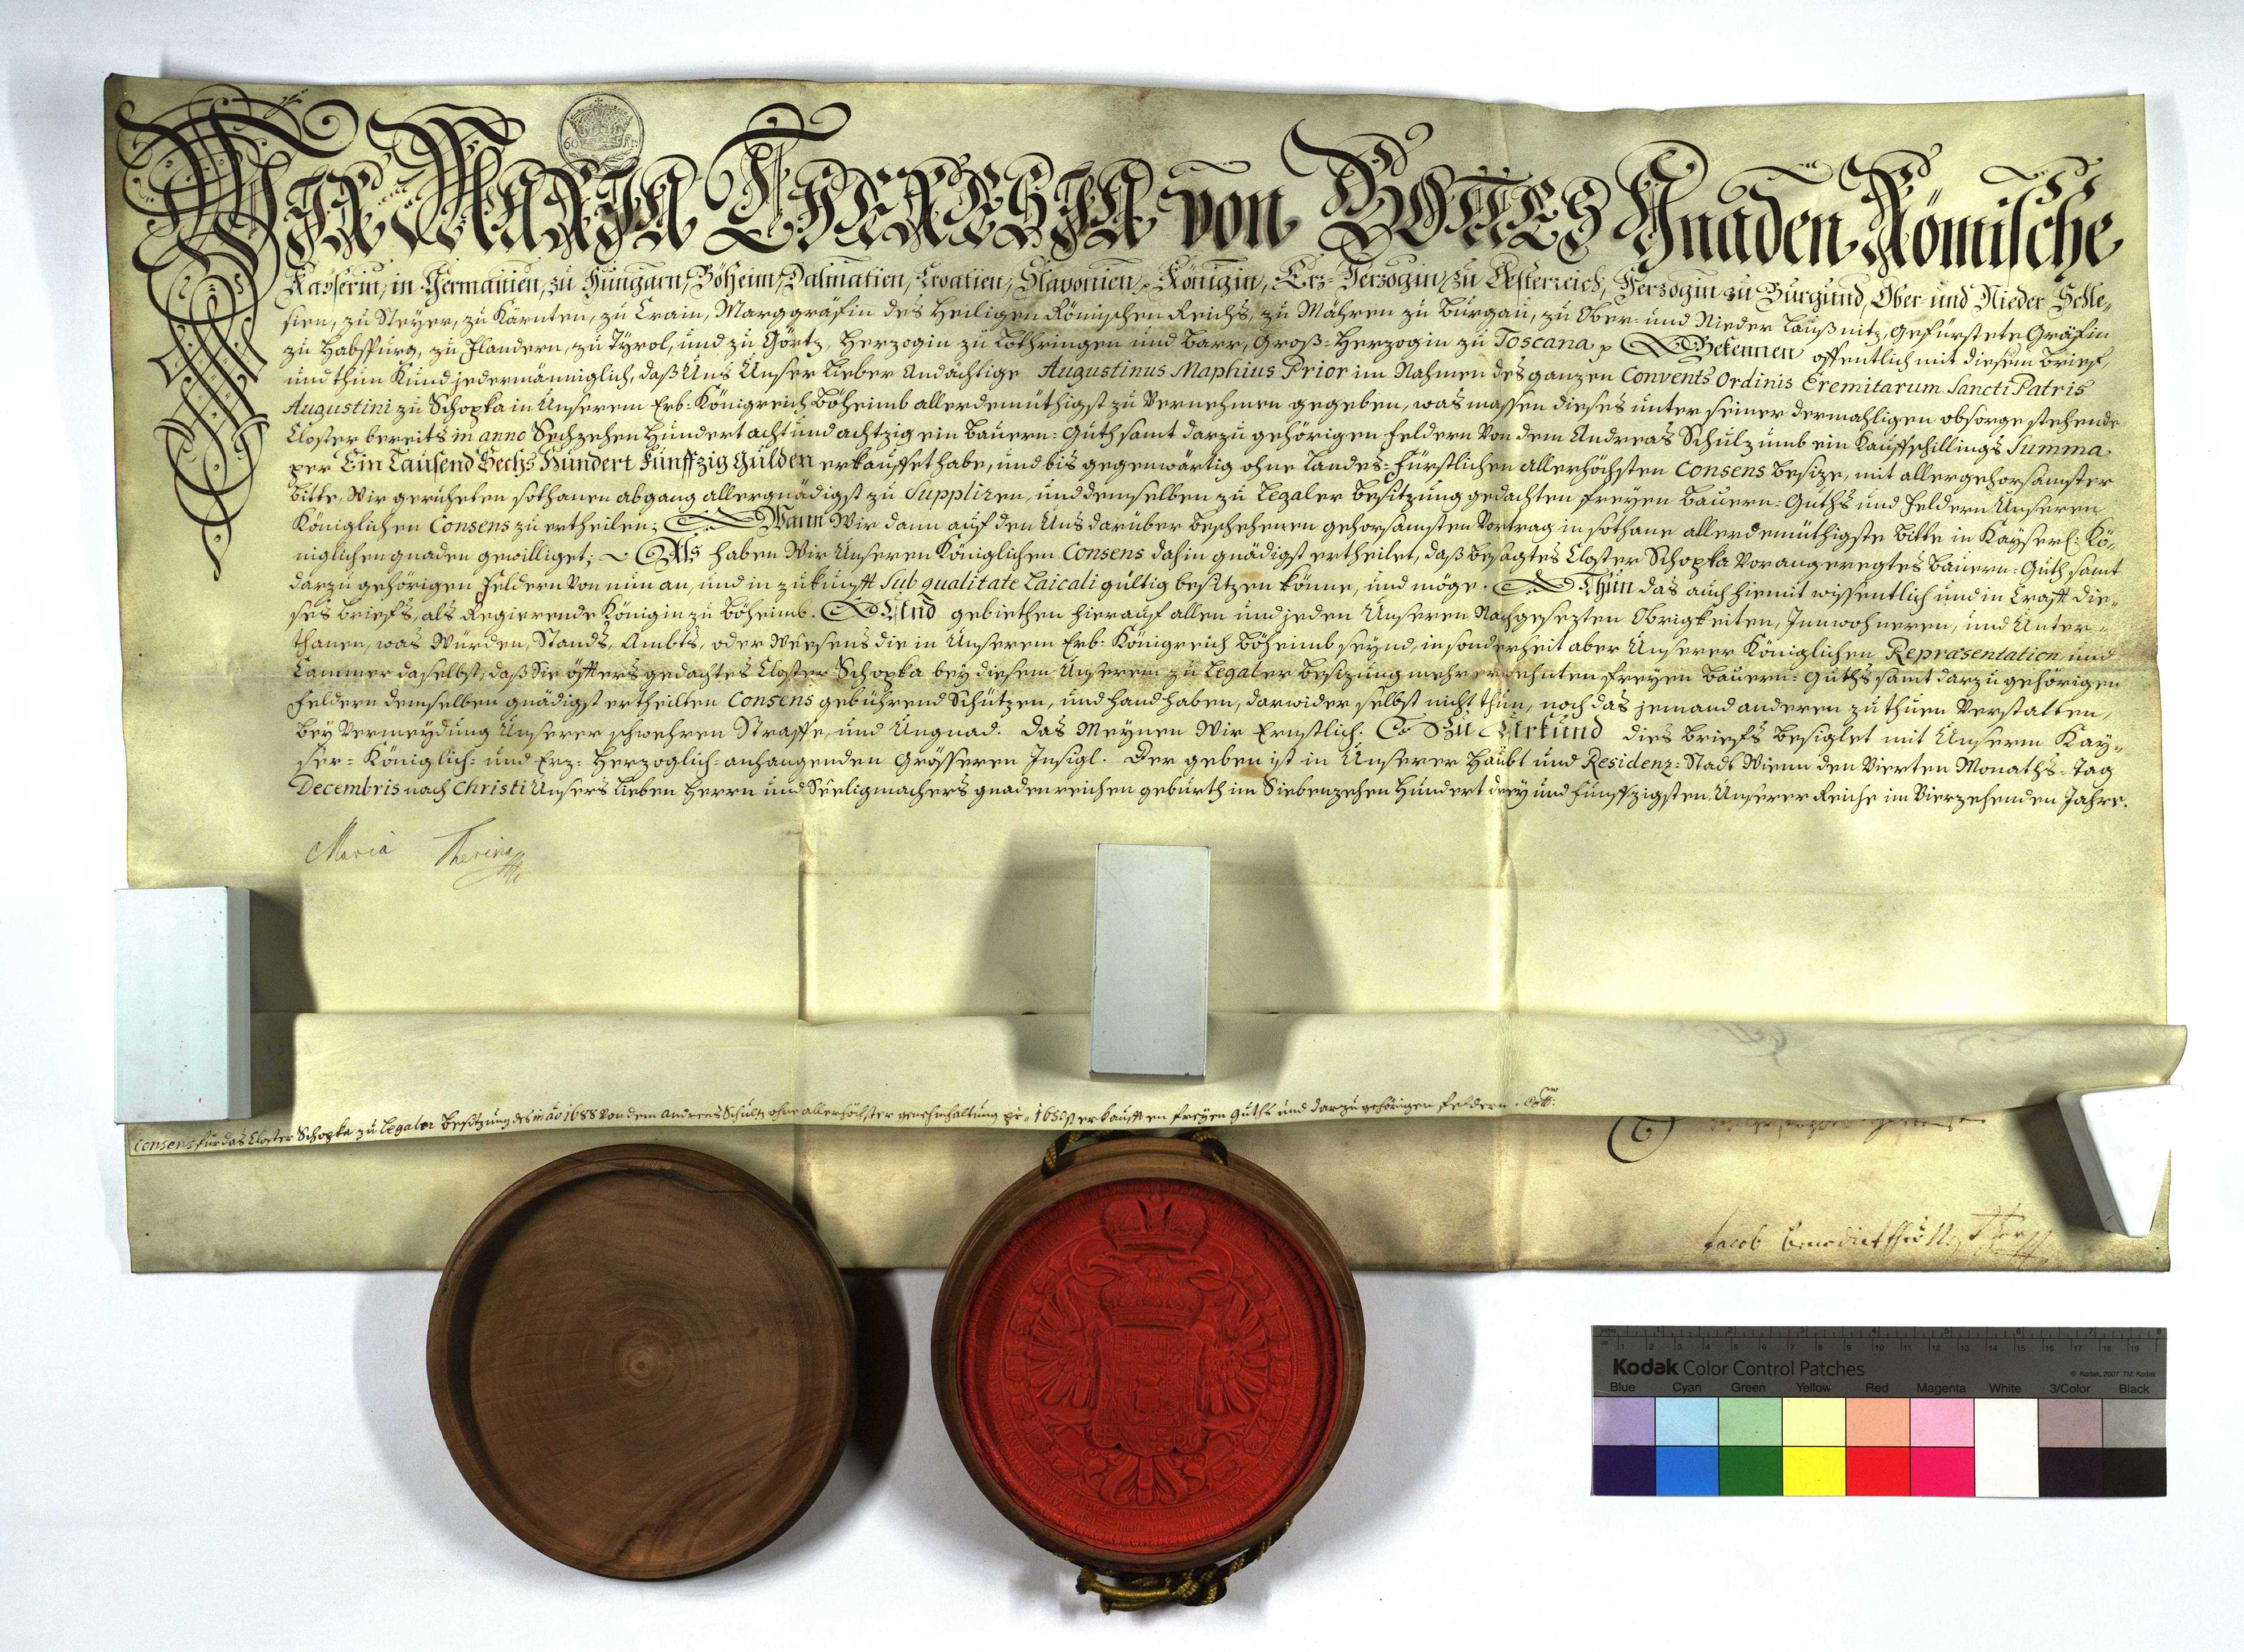 60 Kr.
Wir Maria Theresia von Gottes Gnaden Römische
Kayserin, in Germanien, zu Hungarn, Böheim, Dalmatien, Croatien, Slavonien, Königin, Erz-Herzogin zu Oesterreich, Herzogin zu Burgund, Ober- und Nieder Schle-
sien, zu Steyer, zu Kärnten, zu Crain, Marggräfin des Heiligen Römischen Reichs, zu Mähren zu Burgau, zu Ober- und Nieder Laußnitz, Gefürstete Gräfin
zu Habspurg, zu Flandern, zu Tyrol, und zu Görtz, Herzogin zu Lothringen und Barr, Groß-Herzogin zu Toscana p Bekennen offentlich mit diesem Brief,
und thun Kund jedermänniglich, daß Uns Unser Lieber Andächtige Augustinus Maphius Prior im Nahmen des ganzen Convents Ordinis Eremitarum Sancti Patris
Augustini zu Schopka in Unserem Erb-Königreich Böheimb allerdemüthigst zu Vernehmen gegeben, was massen dieses unter seiner dermahligen obsorge stehende
Closter bereits in anno Sechzehen Hundert acht und achtzig ein Bauern-Guth samt darzu gehörigen Feldern Von dem Andreas Schulz umb ein Kauffschillings Summa
per Ein Tausend Sechs Hundert Funffzig Gulden erkauffet habe, und bis gegenwärtig ohne Landes-Fürstlichen allerhöchsten Consens Besize, mit allergehorsamster
Bitte, Wir geruheten sothanen abgang allergnädigst zu Suppliren, und demselben zu Legaler Besitzung gedachten freyen Bauern-Guths und Feldern Unseren
Königlichen Consens zu ertheilen; Wann Wir dann auf den Uns darüber beschehenen gehorsamsten Vortrag in sothane allerdemüthigste Bitte in Kayserl: Kö-
niglichen gnaden gewilliget; Als haben Wir Unseren Königlichen Consens dahin gnädigst ertheilet, daß besagtes Closter Schopka Vorangeregtes Bauern-Guth samt
darzu gehörigen Feldern Von nun an, und in zukunfft Sub qualitate Laicali gültig besitzen könne, und möge. Thun das auch hiemit wissentlich und in Crafft die-
ses Briefs, als Regierende Königin zu Böheimb. Und gebiethen hierauf allen und jeden Unseren Nachgesezten Obrigkeiten, Innwohneren, und Unter-
thanen, was Würden, Stands, Ambts, oder Weesens die in Unserem Erb-Königreich Böheimb seynd, insonderheit aber Unserer Königlichen Repræsentation, und
Cammer daselbst, daß Sie öffters gedachtes Closter Schopka bey diesem Unserem zu Legaler Besizung mehr erwehnten freyen Bauern-Guths samt darzu gehörigen
Feldern demselben gnädigst ertheilten Consens gebührend Schützen, und handhaben, darwider selbst nicht thun, noch das jemand anderen zu thuen Verstatten,
Bey Vermeydung Unserer schwehren Straffe, und Ungnad. Das Meynen Wir Ernstlich. Zu Urkund dies Briefs besiglet mit Unserm Kay-
ser- Königlich- und Erz-Herzoglich-anhangenden Grösseren Insigl. Der geben ist in Unserer Haubt und Residenz-Stadt Wienn den Vierten Monaths-Tag
Decembris nach Christi Unsers Lieben Herrn und Seeligmachers gnadenreichen geburth im Siebenzehen Hundert drey und Funffzigsten, Unserer Reiche im Vierzehenden Jahre.
Maria Theresia
Consens für das Closter Schopka zu Legaler Besitzung des in aō 1688 Von dem Andreas Schultz ohne allerhöchster genehmhaltung pr. 1650 f erkaufften freyen Guths und darzu gehörigen Feldern.
Jacob Benedict
Kodak Color Control Patches
© Kodak, 2007 TM: Kodak
Blue Cyan Green Yellow Red Magenta White 3/Color Black